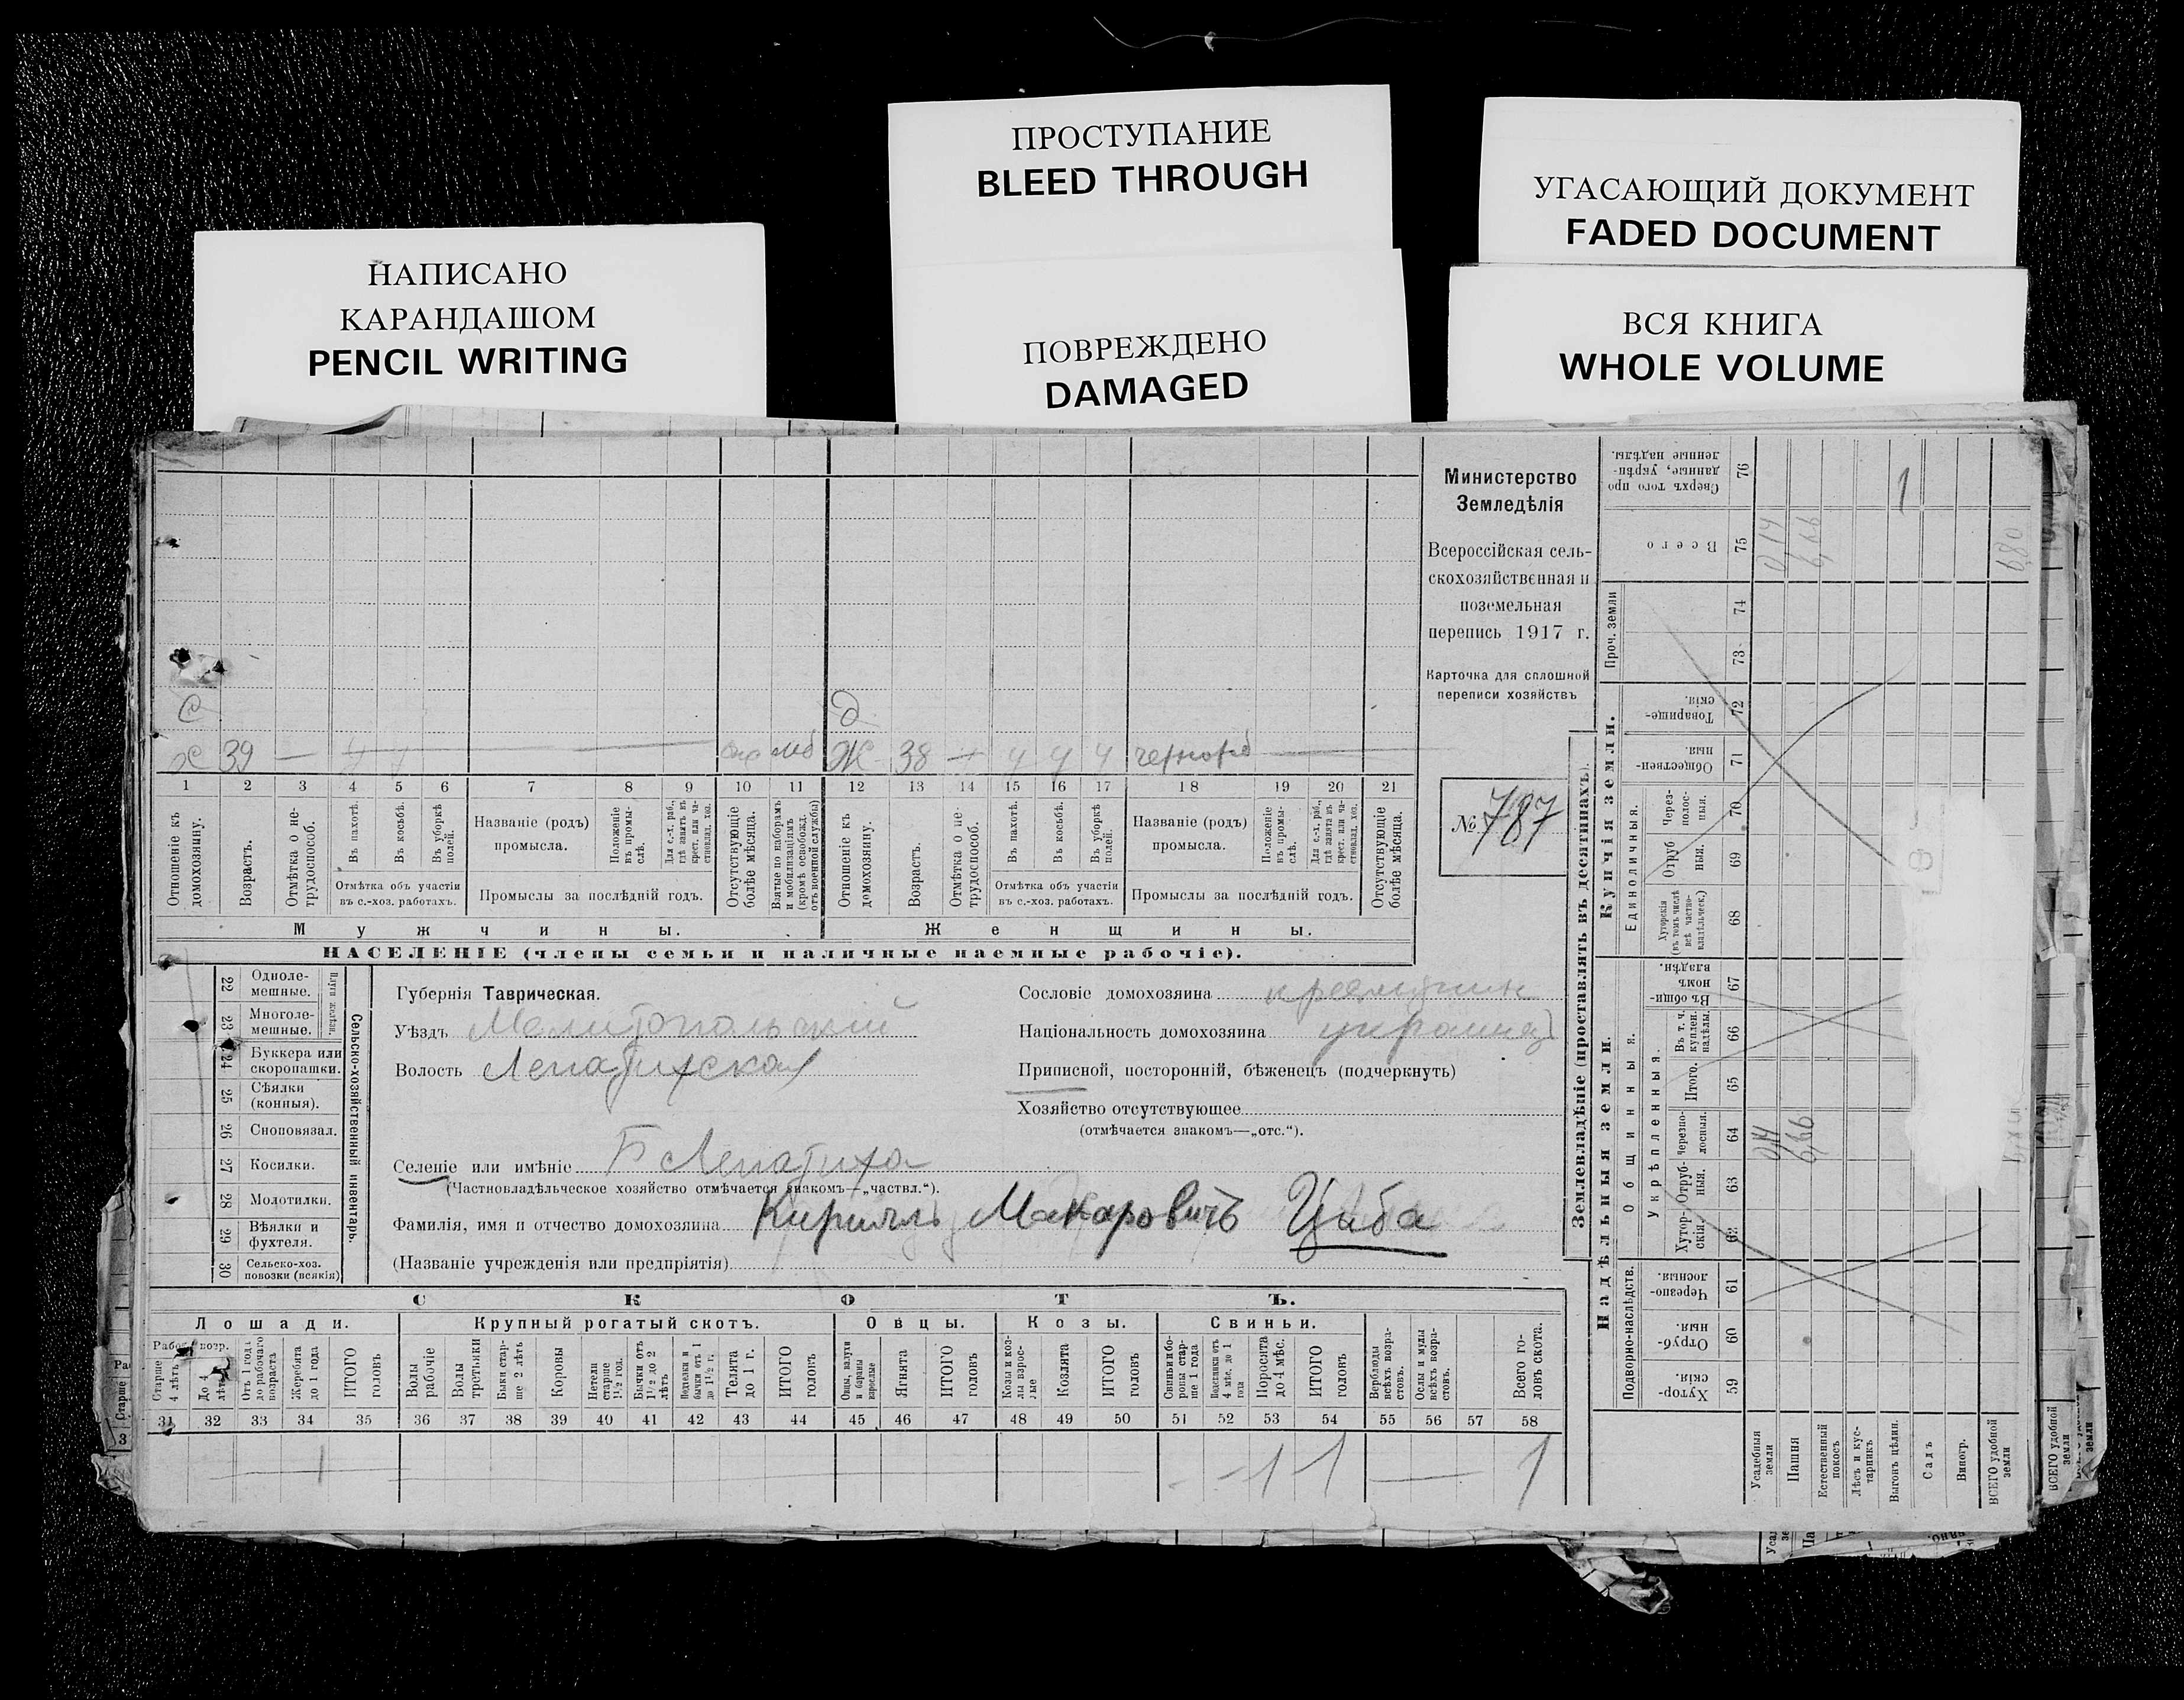 НАПИСАНО
КАРАНДАШОМ
PENCIL WRITING
ПРОСТУПАНИЕ
BLEED THROUGH
ПОВРЕЖДЕНО
DAMAGED
УГАСАЮЩИЙ ДОКУМЕНТ
FADED DOCUMENT
ВСЯ КНИГА
WHOLE VOLUME
Министерство
Земледѣлія
Всероссійская сель-
скохозяйственная и
поземельная
перепись 1917 г.
Карточка для сплошной
переписи хозяйствъ
№ 787
39 Ж 38
1 2 3 4 5 6 7 8 9 10 11 12 13 14 15 16 17 18 19 20 21
Отношеніе къ домохозяину.
Возрастъ.
Отмѣтка о не-трудоспособ.
Въ пахотѣ.
Въ косьбѣ.
Въ уборкѣ полей.
Отмѣтка объ участіи
въ с.-хоз. работахъ.
Названіе (родъ)
промысла.
Положеніе въ промы-слѣ.
Для с.-х. раб., гдѣ занятъ въ крест. или ча-стновлад. хоз.
Промыслы за послѣдній годъ.
Отсутствующіе болѣе мѣсяца.
Взятые по наборамъ и мобилизаціямъ (кромѣ освобожд. отъ военной службы)
Отношеніе къ домохозяину.
Возрастъ.
Отмѣтка о не-трудоспособ.
Въ пахотѣ.
Въ косьбѣ.
Въ уборкѣ полей.
Отмѣтка объ участіи
въ с.-хоз. работахъ.
Названіе (родъ)
промысла.
Положеніе въ промы-слѣ.
Для с.-х. раб., гдѣ занята въ крест. или ча-стновлад. хоз.
Промыслы за послѣдній годъ.
Отсутствующіе болѣе мѣсяца.
Мужчины.
Женщины.
НАСЕЛЕНІЕ (члены семьи и наличные наемные рабочіе).
22 Одноле-мешные.
23 Многоле-мешные.
24 Буккера или скоропашки.
25 Сѣялки (конныя).
26 Сноповязал.
27 Косилки.
28 Молотилки.
29 Вѣялки и фухтеля.
30 Сельско-хоз. повозки (всякія)
Плуги желѣзн.
Сельско-хозяйственный инвентарь.
Губернія Таврическая.
Уѣздъ Мелитопольскій
Волость Лепатихская
Селеніе или имѣніе Б Лепатиха
(Частновладѣльческое хозяйство отмѣчается знакомъ—„частвл.“).
Фамилія, имя и отчество домохозяина Кириллъ Макаровичъ Цыба
(Названіе учрежденія или предпріятія)
Сословіе домохозяина крестьянин
Національность домохозяина украинец
Приписной, посторонній, бѣженецъ (подчеркнуть)
Хозяйство отсутствующее
(отмѣчается знакомъ—„отс.“).
СКОТЪ.
Лошади. Крупный рогатый скотъ. Овцы. Козы. Свиньи.
Рабоч. возр.
Старше 4 лѣтъ
До 4 лѣтъ
Отъ 1 года до рабочаго возраста
Жеребята до 1 года
ИТОГО головъ
Волы рабочіе
Волы третьяки
Быки стар-ше 2 лѣтъ
Коровы
Нетели старше 1½ год.
Бычки отъ 1½ до 2 лѣтъ
Подтелки и бычки отъ 1 до 1½ г.
Телята до 1 г.
ИТОГО головъ
Овцы, валухи и бараны взрослые
Ягнята
ИТОГО головъ
Козы и коз-лы взрос-лые
Козлята
ИТОГО головъ
Свиньи и бо-ровы стар-ше 1 года
Подсвинки отъ 4 мѣс. до 1 года
Поросята до 4 мѣс.
ИТОГО головъ
Верблюды всѣхъ возра-стовъ.
Ослы и мулы всѣхъ возра-стовъ.
Всего го-ловъ скота.
31 32 33 34 35 36 37 38 39 40 41 42 43 44 45 46 47 48 49 50 51 52 53 54 55 56 57 58
1 1 1
Землевладѣніе (проставлять въ десятинахъ).
Купчія земли.
Надѣльныя земли.
Сверхъ того про-данные, укрѣп-ленные надѣлы. 76
Всего 75
Проч. земли 74 73
Товарище-скія. 72
Обществен-ныя. 71
Единоличныя.
Через-полос-ныя. 70
Отруб-ныя. 69
Хуторскія (въ томъ числѣ всѣ частно-владѣльческ.) 68
Общинныя.
Въ общи-номъ владѣн. 67
Укрѣпленныя.
Въ т. ч. куплен. надѣлы. 66
Итого. 65
Черезпо-лосныя. 64
Отруб-ныя. 63
Хутор-скія. 62
Подворно-наслѣдств.
Черезпо-лосныя. 61
Отруб-ныя. 60
Хутор-скія. 59
Усадебныя земли
Пашня
Естественный покосъ
Лѣсъ и кус-тарникъ
Выгонъ цѣлин.
Садъ
Виногр.
ВСЕГО удобной земли
014 666
014 666
1
680
ВСЕГО удобной земли